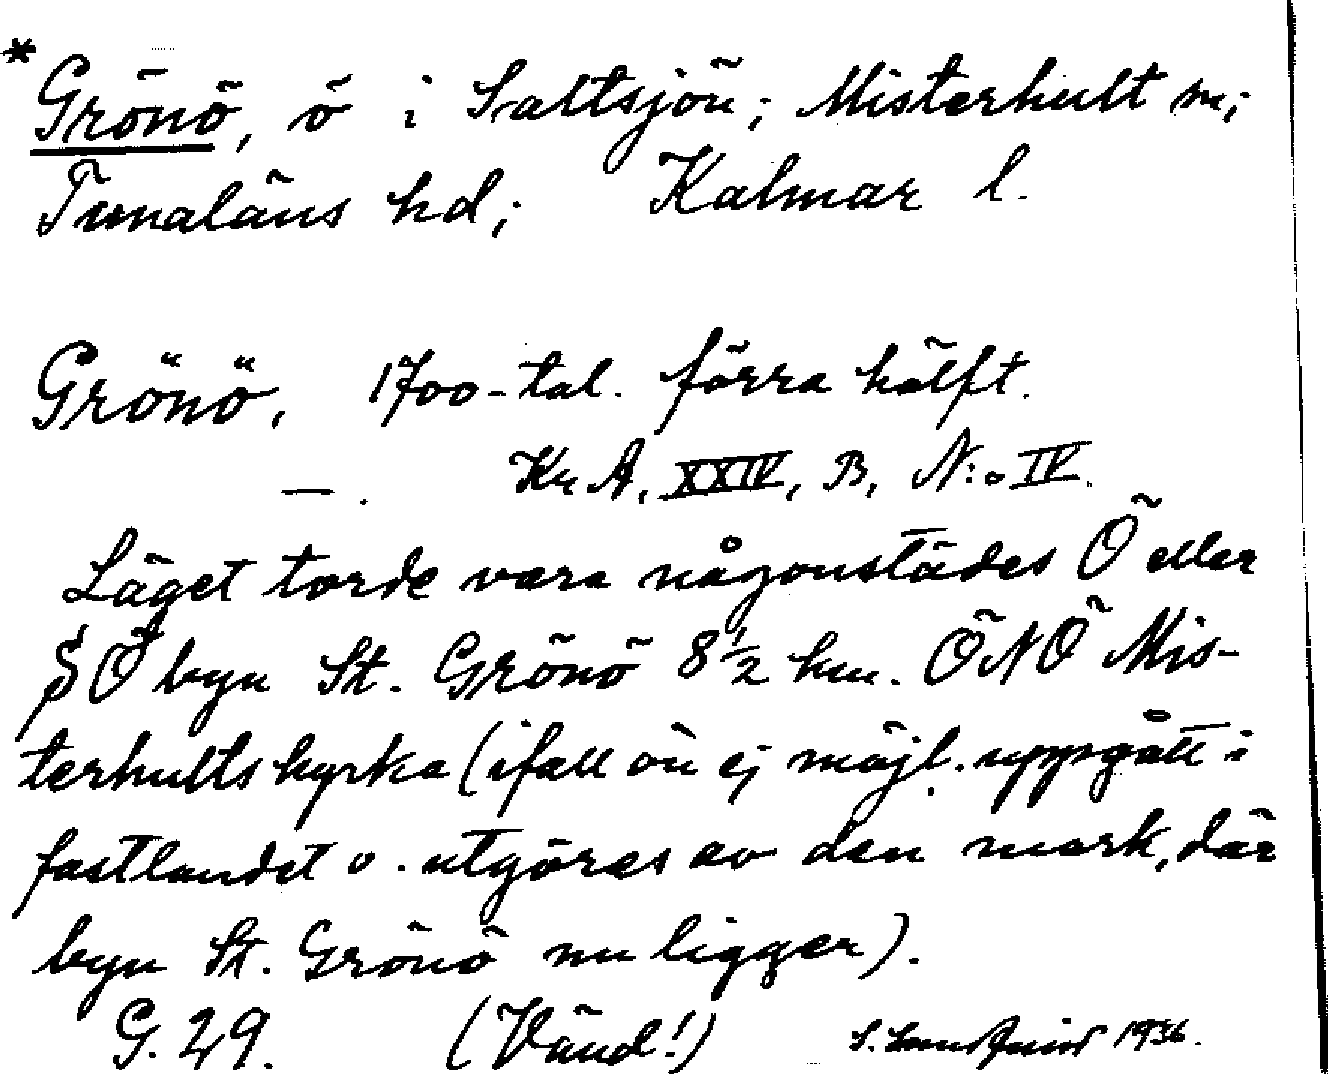 * Grönö, ö i Saltsjön; Misterhult sn;
Tunaläns hd; Kalmar l.
Grönö, 1700-tal. förra hälft.
— . Kr A, XXIV, B, N:o IV.
Läget torde vara någonstädes Ö eller
SÖ byn St. Grönö 8 1/2 km. ÖNÖ Mis-
terhults kyrka (ifall ön ej möjl. uppgått i
fastlandet o. utgöres av den mark, där
byn St. Grönö nu ligger).
G. 29. (Vänd!) S. 1936.